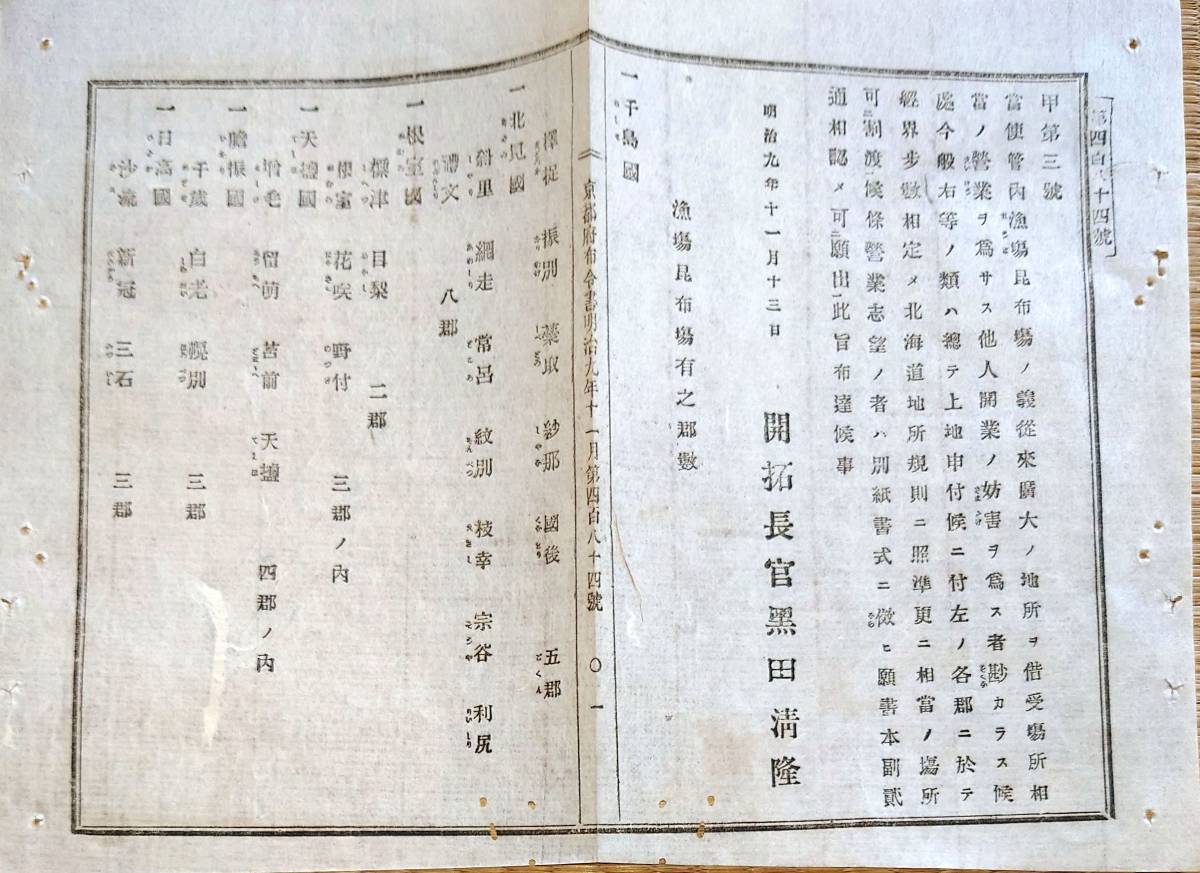 第四百八十四號
甲第三號
當使管内漁塲昆布塲ノ義從來廣大ノ地所ヲ借受塲所相
當ノ營業ヲ爲サス他人開業ノ妨害ヲ爲ス者尠カラス候
處今般右等ノ類ハ總テ上地申付候ニ付左ノ各郡ニ於テ
經界歩數相定メ北海道地所規則ニ照準更ニ相當ノ塲所
可割渡候條營業志望ノ者ハ別紙書式ニ傚ヒ願書本副貳
通相認メ可願出此旨布達候事
明治九年十一月十三日
開拓長官黑田淸隆
漁塲昆布塲有之郡數
一千島國
擇捉 振別 蘂取 紗那 國後 五郡
京都府布令書明治九年十一月第四百八十四號 〇一
一北見國
斜里 網走 常呂 紋別 枝幸 宗谷 利尻
禮文 八郡
一根室國
標津 目梨 二郡
根室 花咲 野付 三郡ノ内
一天塩國
增毛 留萌 苫前 天塩 四郡ノ内
一膽振國
千歳 白老 幌別 三郡
一日高國
沙流 新冠 三石 三郡